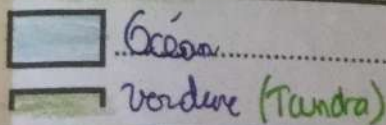 Océan
Verdure (Tundra)